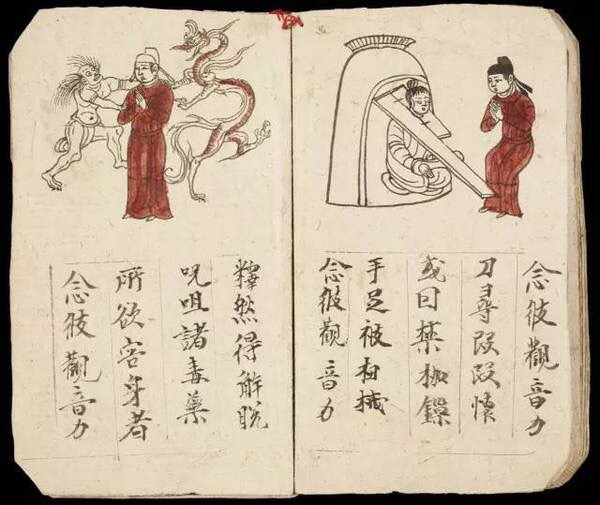 念彼觀音力
刀尋段段懷
或囚禁枷鏁
手足被杻械
念彼觀音力
釋然得解脱
呪咀諸毒藥
所欲害身者
念彼觀音力